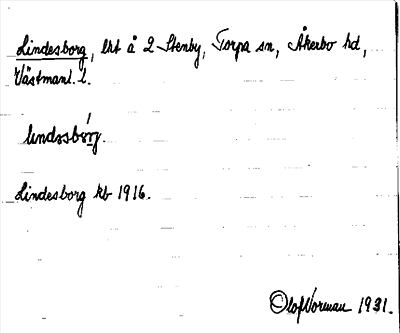 Lindesborg, lht å 2 Stenby, Torpa sn, Åkerbo hd,
Västmanl. l.
lındəsbórg.
Lindesborg kb 1916.
Olof Norman 1931.